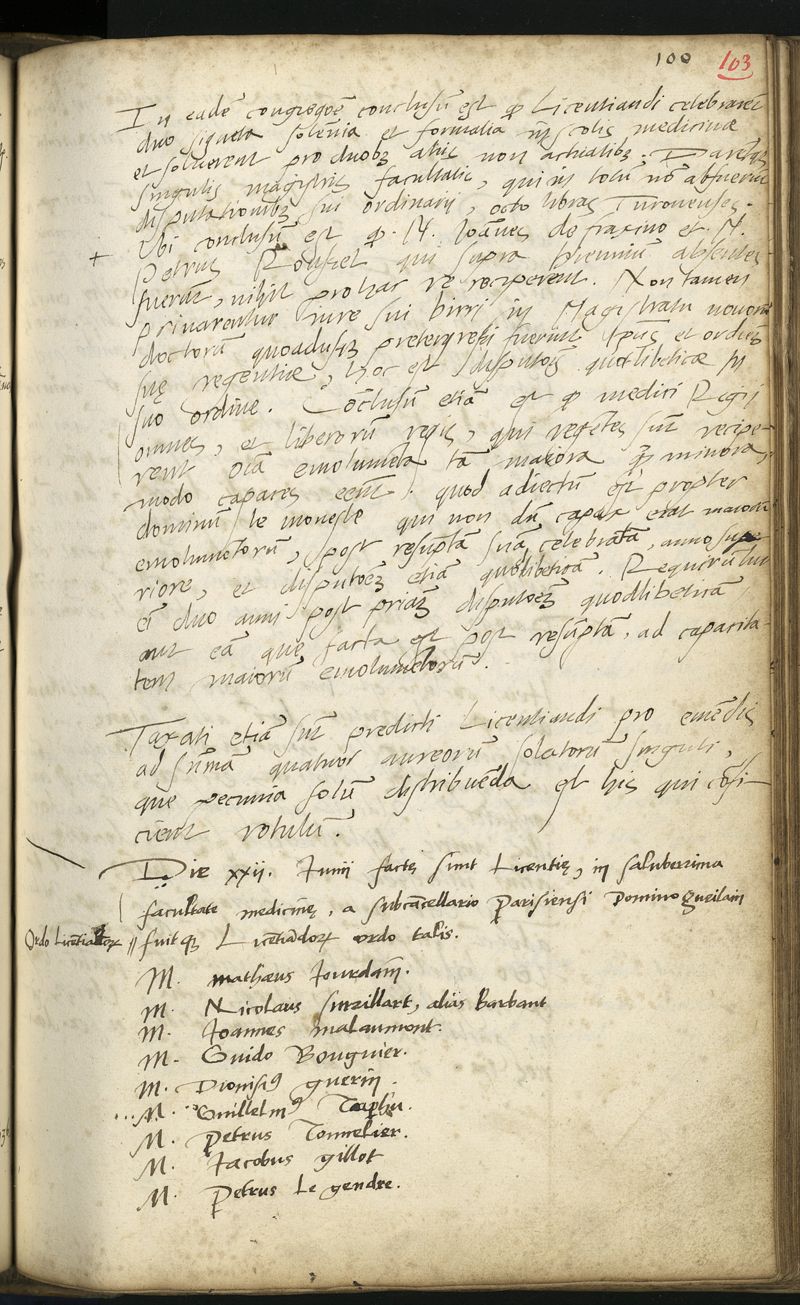 100 103
In eadē congregoē conclusū est qp Licentiandi celebrarēt
duo signeta solēnia et formalia in scolis medicinæ
et solverent pro duobꝫ aliis non actualibꝫ. Darētqꝫ
singulis magistris facultatis, qui in totū nō abfuerūt
disputationibꝫ sui ordinarii, octo libras Turonenses.
Ubi conclusū est qp M. Ioānes de fraxino et M.
+ Petrus Rousset qui supra biennium absentes
fuerūt, nihil pro hac re reciperent. Non tamen
privarentur iure sui birri in Magistratu novorū
doctorū quoadusqꝫ pretergressi fuerint tp̄us et ordinē
suę regentiæ, hoc est disputōis quotlibeticæ in
suo ordine. Cōclusū etiā est qp medici Regii
omnes, et liberorū regis, qui regētes sūt recipe-
rent oīa emolumēta tā maiora qp̄ minora,
modo capaces eēnt. quod adiectū est propter
dominū le moneste qui non dū capax erat maiorū
emolumētorū, post resūptā suā celebratā, anno supe
riore, et disputoēꝫ etiā quotlibeticā. Requirūtur
ei duo anni post primā disputoēꝫ quodlibeticā
aut eā que facta est post resūptā, ad capacita-
tem maiorū emolumētorū.
Taxati etiā sūt predicti Licentiandi pro emēdis
ad sūmā quatuor aureorū solatorū singuli,
que pecunia solū distribuēda est his qui cōfi-
cient rotulū.
Die xxii. Iunii factę sunt Licentię, in saluberrima
facultate medicinę, a subcācellario Parisiensi Domino Gueilain
Ordo Licētiadoꝝ // fuitqꝫ Licētiādoꝝ ordo talis.
M. mathæus Iourdain.
M. Nicolaus surzillart, aliàs Barbant
M. Ioannes malaumont.
M. Guido Bouguier.
M. Dionisiꝰ guerin.
M. Guillelmꝰ
M. Petrus Tonnelier.
M. Iacobus gillot
M. Petrus Le gendre.